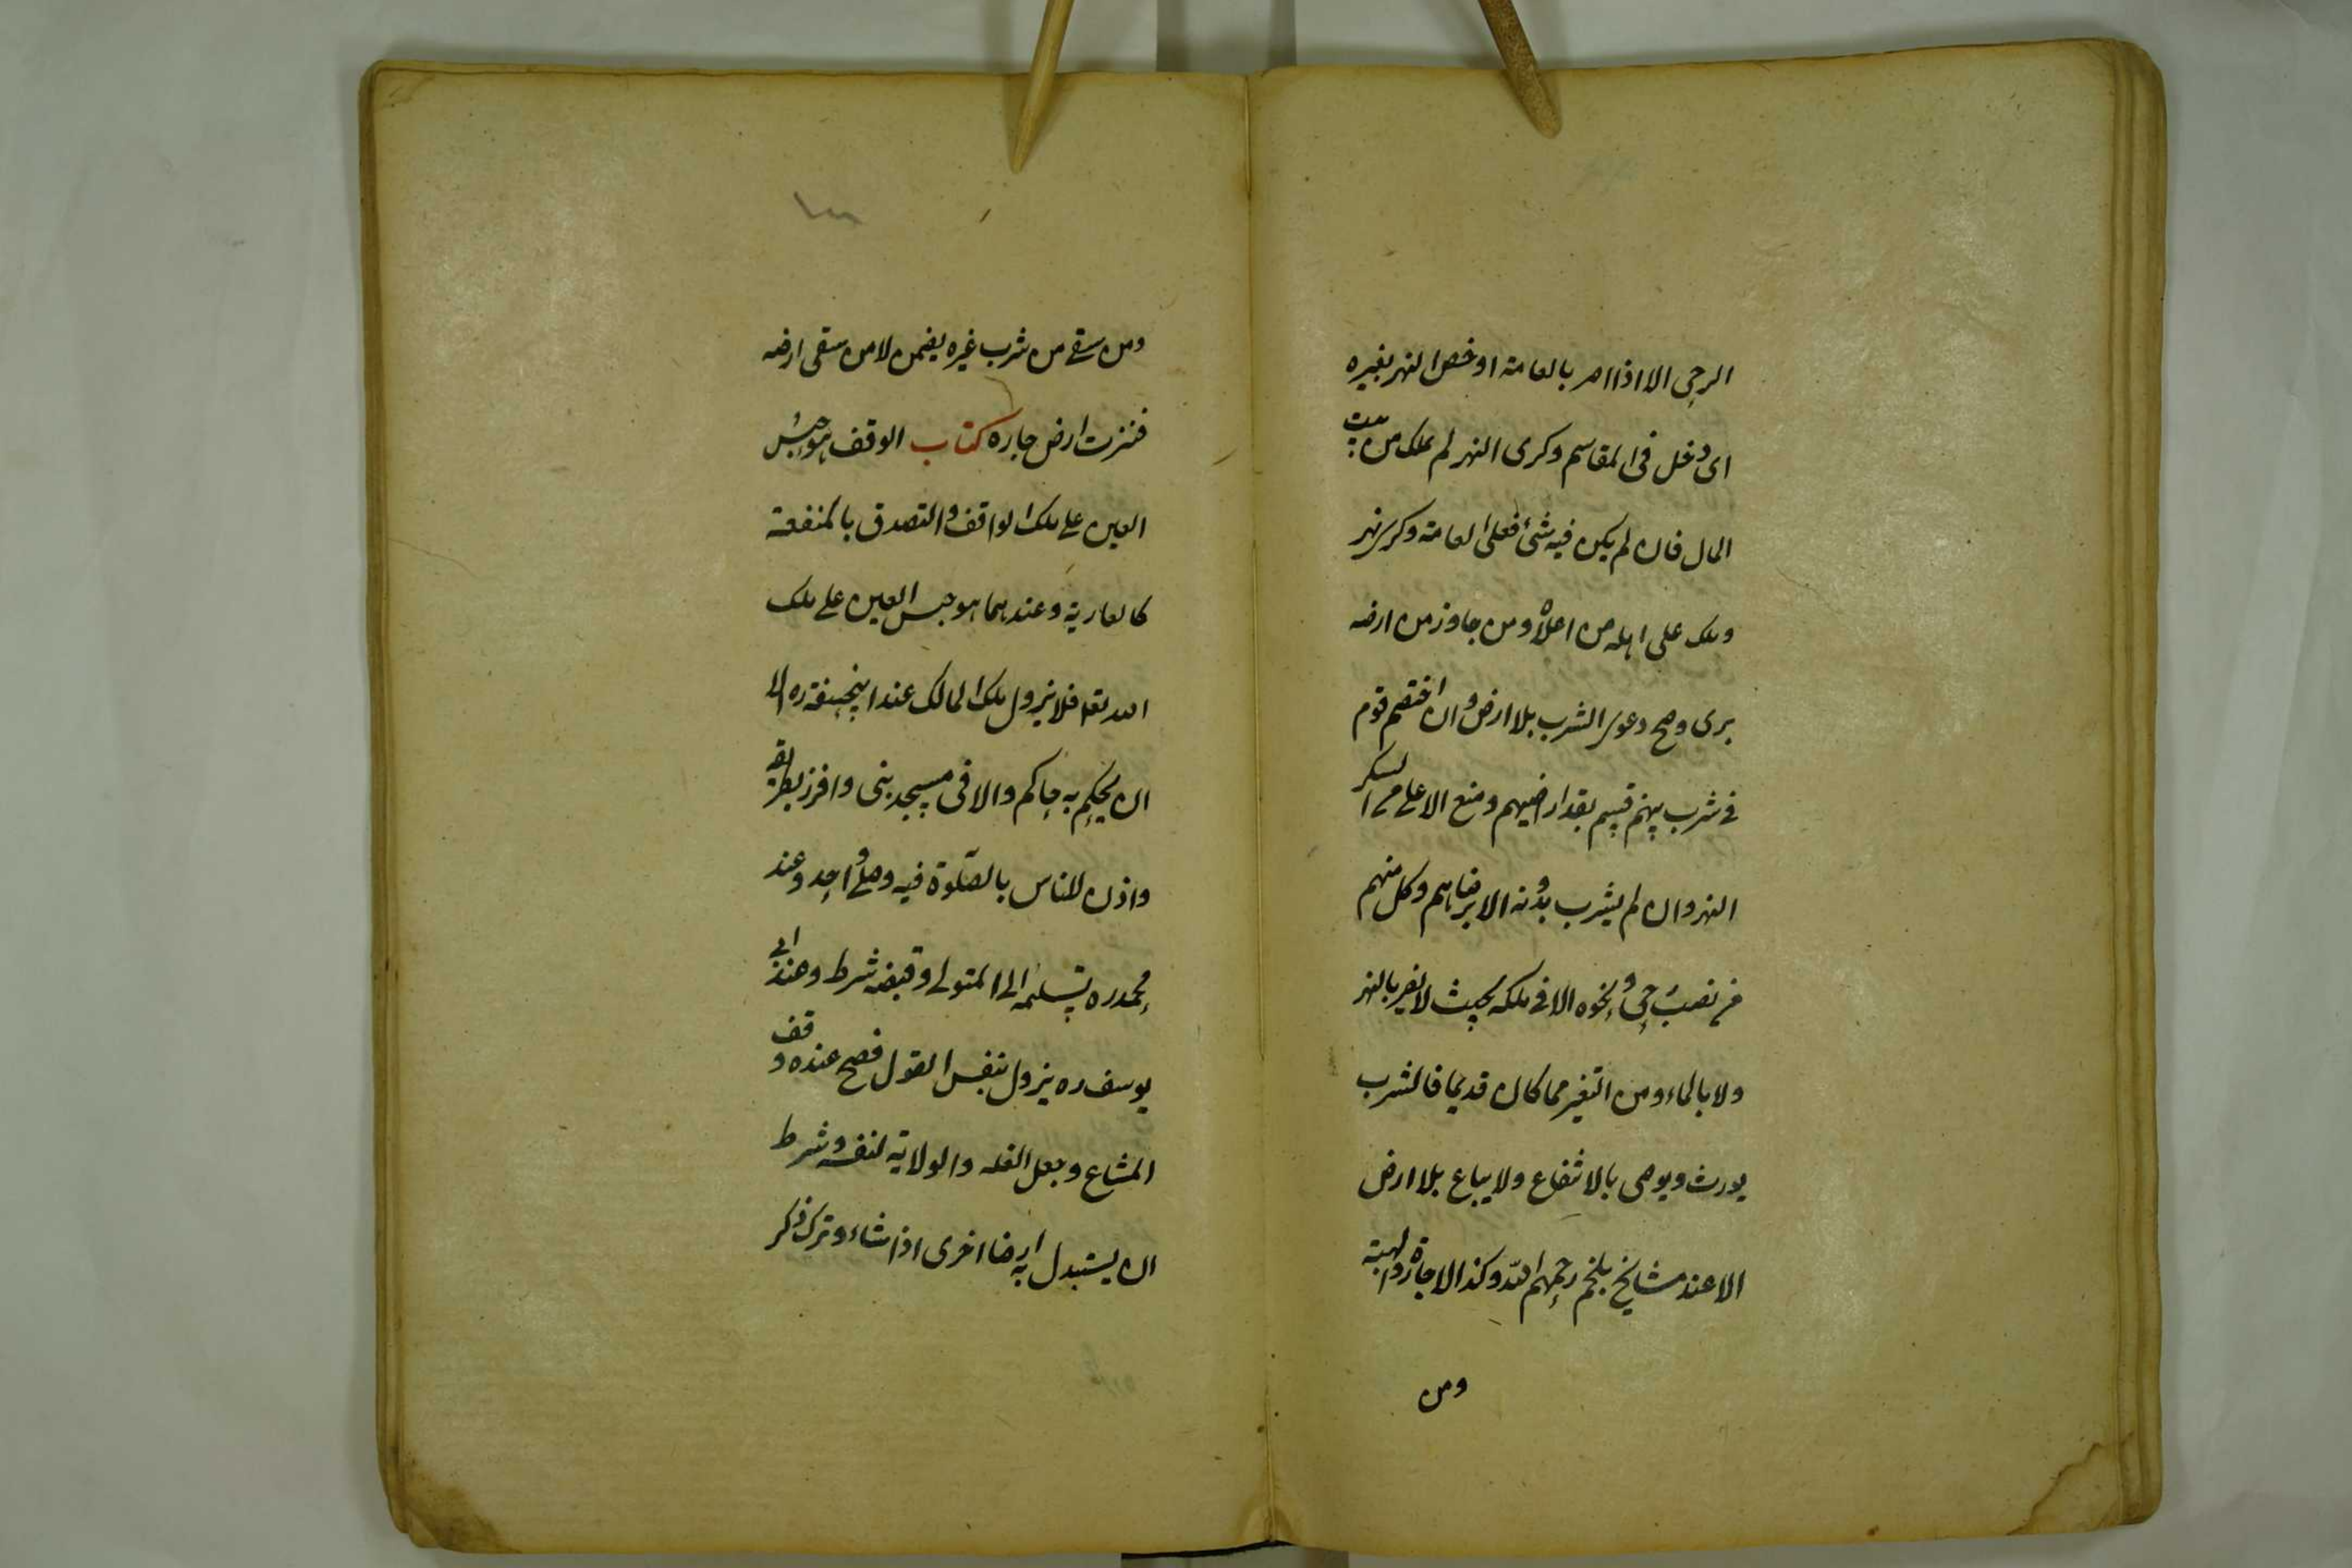 الرحى الا اذا اضر بالعامة او خص النهر بغيره
اى دخل فى المقاسم وكرى النهر لم يملك من بيت
المال فان لم يكن فيه شئ فعلى العامة وكرى نهر
وملك على اهله من اعلاه ومن جاوز من ارضه
برى وصح دعوى الشرب بلا ارض وان اختصم قوم
فى شرب بينهم قسم بقدر اراضيهم ومنع الاعلى من السكر
النهر وان لم يشرب بدونه الا برضاهم وكل منهم
من نصب رحى ونحوه الا فى ملكه بحيث لا يضر بالنهر
ولا بالماء ومن التغير مما كان قديما فالشرب
يورث ويوصى بالانتفاع ولا يباع بلا ارض
الا عند مشايخ بلخ رحمهم الله وكذا الاجارة والهبة
ومن
ومن سقى من شرب غيره يضمن لا من سقى ارضه
فنزت ارض جاره كتاب الوقف هو حبس
العين على ملك الواقف والتصدق بالمنفعة
كالعارية وعندهما هو حبس العين على ملك
الله تعا فلا يزول ملك المالك عند ابيحنيفة ره الا
ان يحكم به حاكم والا فى مسجد بنى وافرز بطريقه
واذن للناس بالصلوة فيه وصلى واحد وعند
محمد ره تسليمه الى المتولى وقبضه شرط وعند ابى
يوسف ره يزول بنفس القول فصح عنده وقف
المشاع وجعل الغلة والولاية لنفسه وشرط
ان يستبدل به ارضا اخرى اذا شاء وترك ذكر